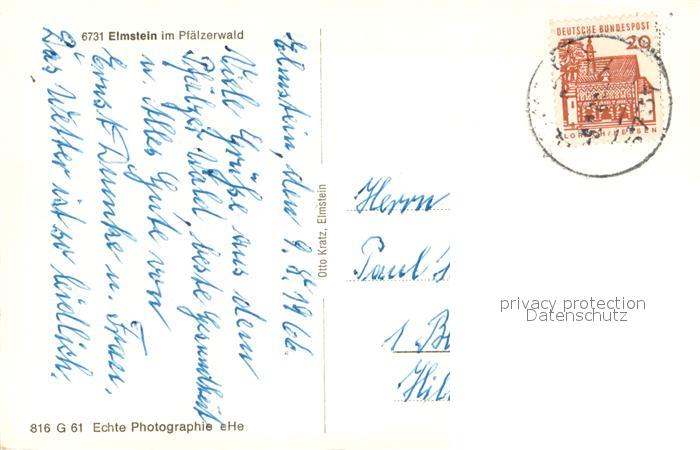 6731 Elmstein im Pfälzerwald
Elmstein, den 9. 8. 1966.
Viele Grüße aus dem
Pfälzer Wald, beste Gesundheit
u. Alles Gute von
Ernst Dumke u. Frau.
Das Wetter ist so leidlich.
816 G 61 Echte Photographie eHe
Otto Kratz, Elmstein
DEUTSCHE BUNDESPOST
20
LORSCH/HESSEN
Herrn
Paul
1 B
Hil
privacy protection
Datenschutz